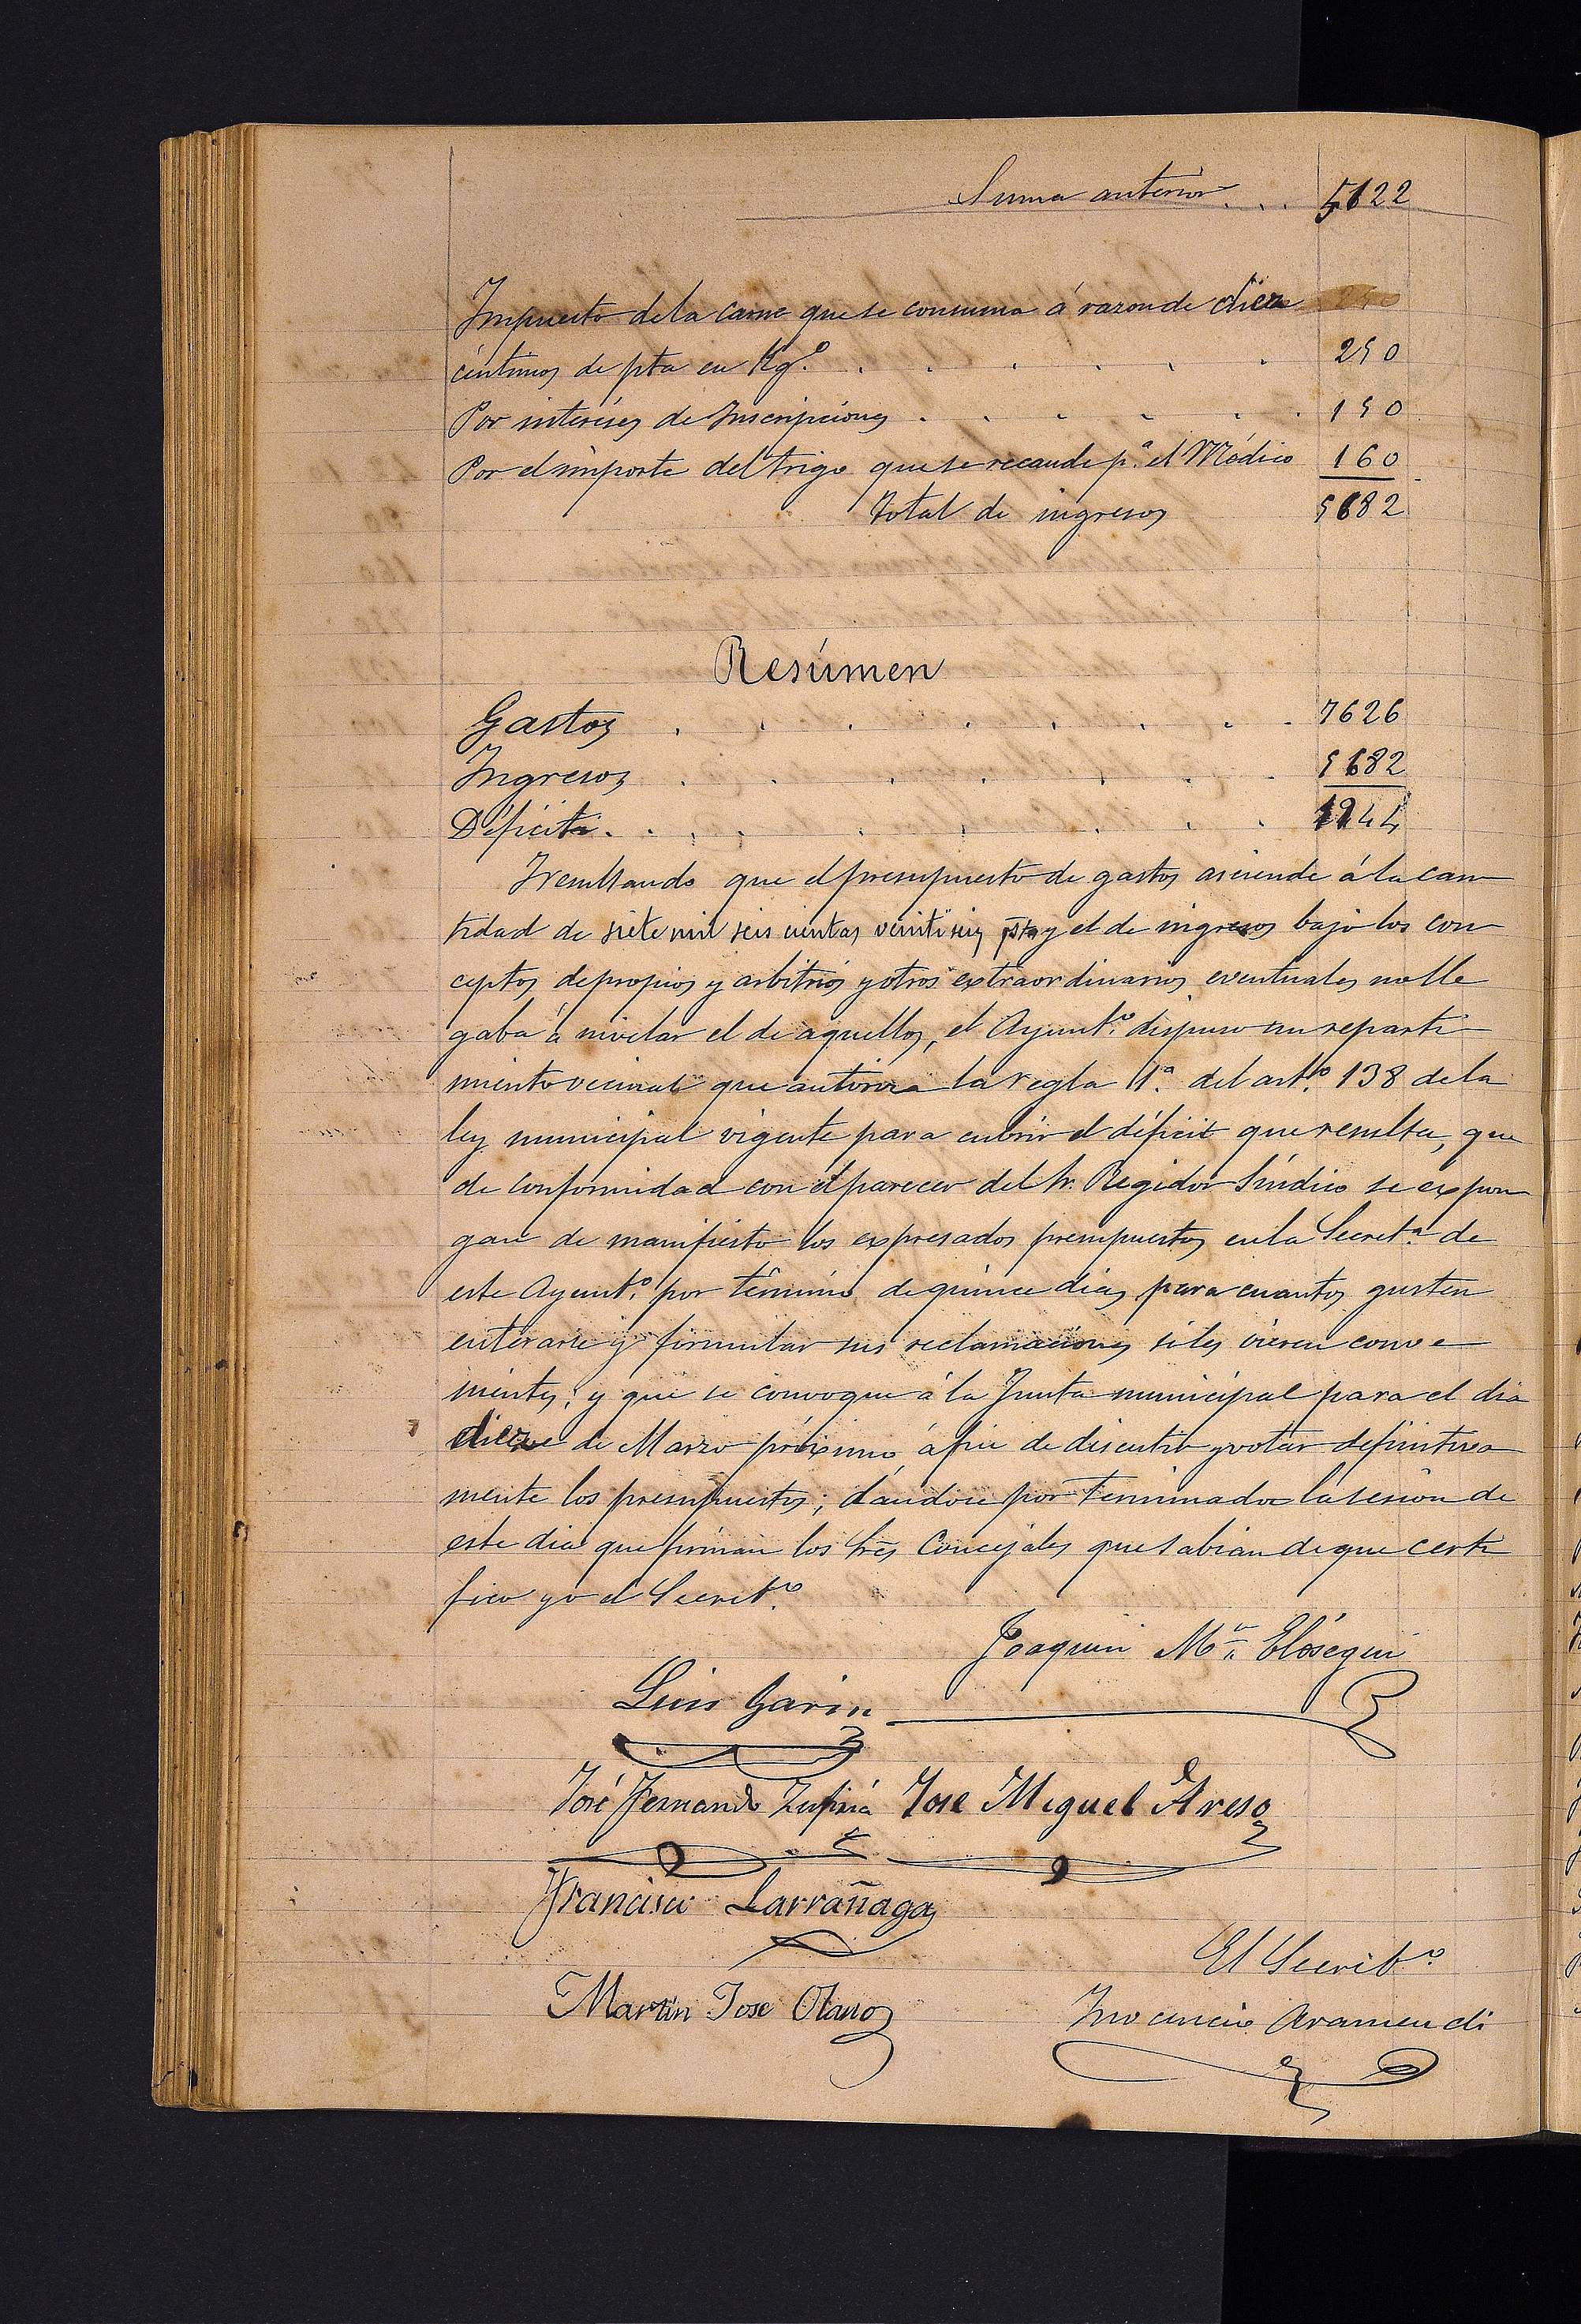 Suma anterior . . . 5122
Impuesto de la carne que se consuma á razon de diez
céntimos de pta en Kg.º . . . . . . 250
Por interéses de Inscripciones . . . . . 150
Por el importe del trigo que se recaude p.ª el Médico 160
Total de ingresos 5682
Resúmen
Gastos . . . . . . . . 7626
Ingresos . . . . . . . 5682
Déficit . . . . . . . . 1944
Y resultando que el presupuesto de gastos asciende á la can
tidad de siete mil seis cientas veinti seis ptas y el de ingresos bajo los con
ceptos de propios y arbitrios y otros extraordinarios eventuales no lle
gaba á nivelar el de aquellos, el Ayunt.º dispuso un reparti
miento vecinal que autoriza la regla 1.ª del art.º 138 de la
ley municipal vigente para cubrir el déficit que resulta, que
de conformidad con el parecer del Sr. Regidor Síndico se expon
gan de manifiesto los expresados presupuestos en la Secret.ª de
este Ayunt.º por término de quince dias para cuantos gusten
enterarse y formular sus reclamaciones si les vieren conve
nientes; y que se convoque á la Junta municipal para el dia
de Marzo próximo á fin de discutir y votar definitiva
mente los presupuestos; dándose por terminado la sesion de
este dia que firman los Sres Concejales que sabian de que certi
fico yo el Secret.º
Joaquin M.ª Elósegui
Luis Garin
José Fernando Zufiria Jose Miguel Areso
Francisco Larrañaga
El Secret.º
Martin Jose Olano Inocencio Aramendi